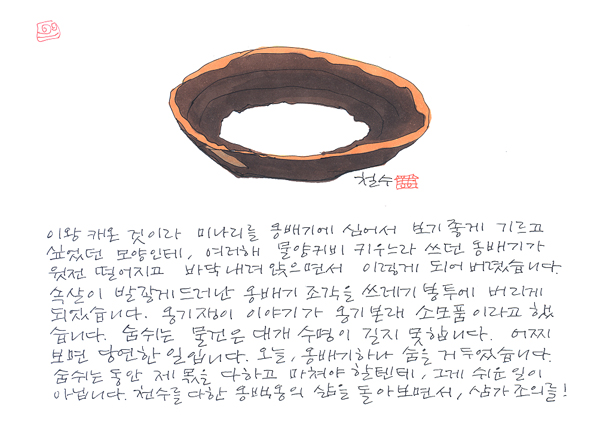 철수
이왕 캐온 것이라 미나리를 옹배기에 심어서 보기 좋게 기르고
싶었던 모양인데, 여러해 물양귀비 키우느라 쓰던 옹배기가
윗전 떨어지고 바닥 내려앉으면서 이렇게 되어버렸습니다.
속살이 발갛게 드러난 옹배기 조각을 쓰레기 봉투에 버리게
되었습니다. 옹기장이 이야기가 옹기 본래 소모품이라고 했
습니다. 숨쉬는 물건은 대개 수명이 길지 못합니다. 어찌
보면 당연한 일입니다. 오늘, 옹배기 하나 숨을 거두었습니다.
숨쉬는 동안 제 몫을 다하고 마쳐야 할텐데, 그게 쉬운 일이
아닙니다. 천수를 다한 옹백옹의 삶을 돌아보면서, 삼가 조의를!